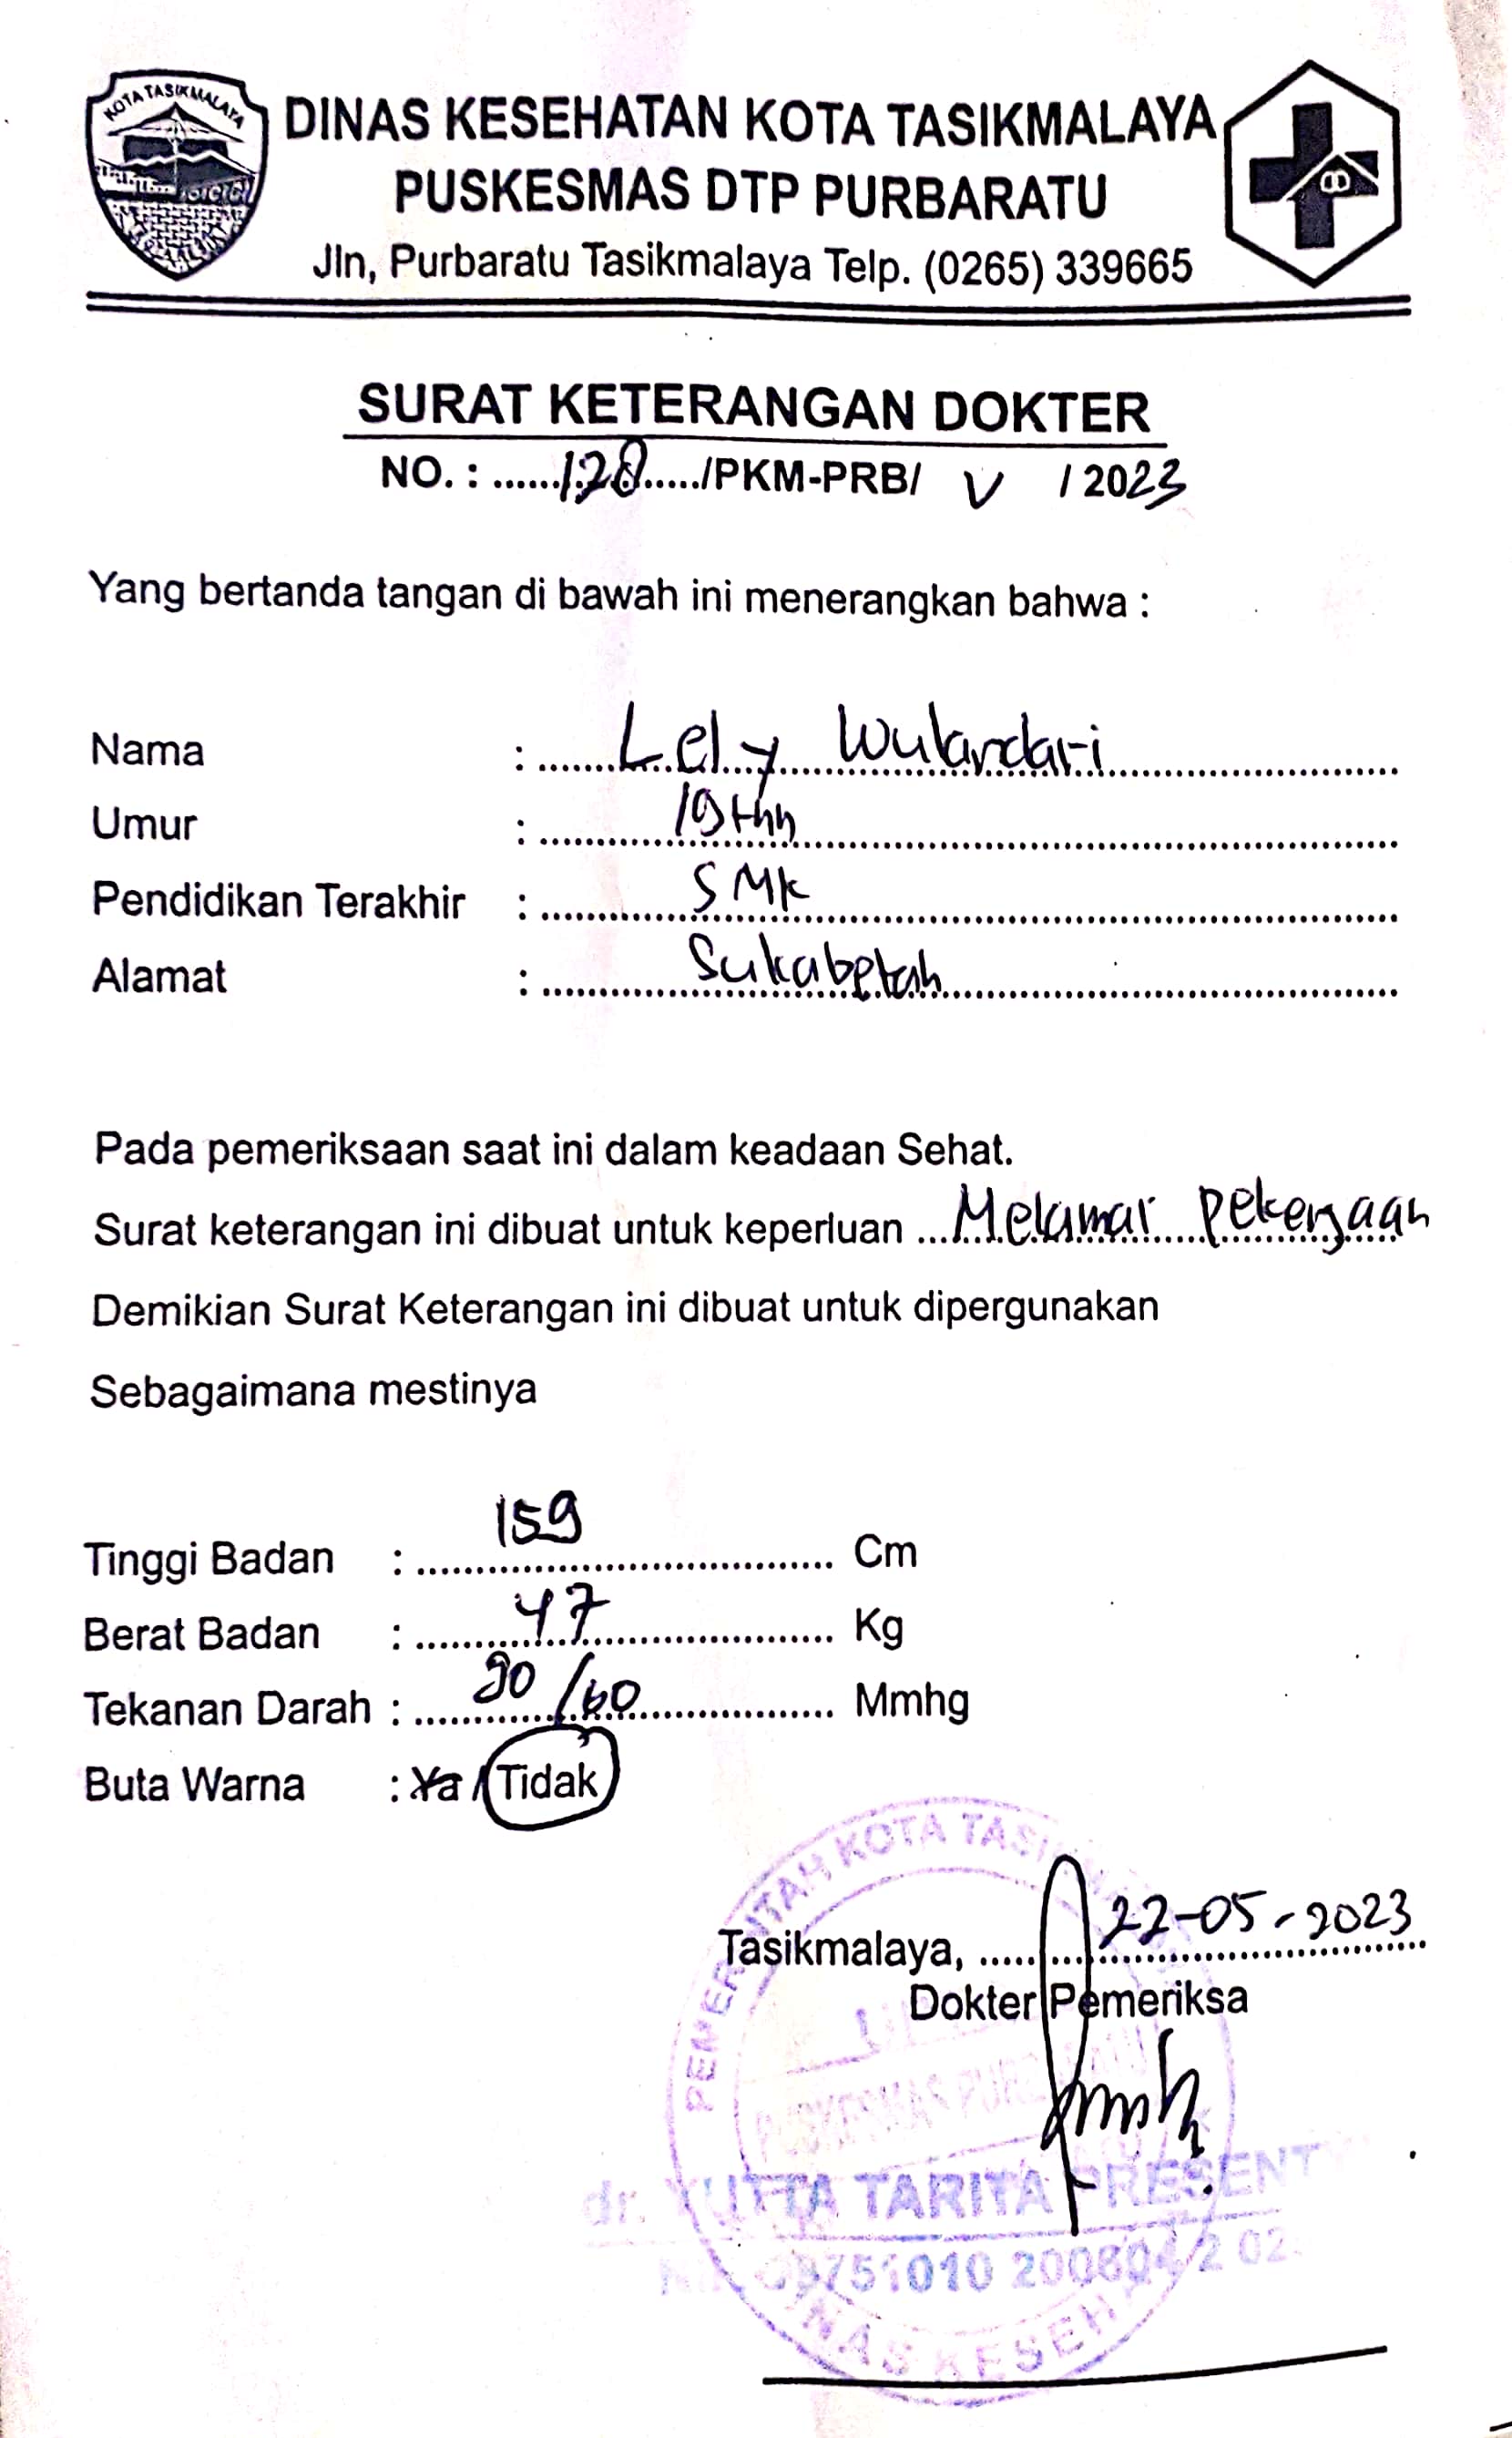 KOTA TASIKMALAYA
DINAS KESEHATAN KOTA TASIKMALAYA
PUSKESMAS DTP PURBARATU
Jln, Purbaratu Tasikmalaya Telp. (0265) 339665
SURAT KETERANGAN DOKTER
NO. : ......128....../PKM-PRB/ V / 2023
Yang bertanda tangan di bawah ini menerangkan bahwa :
Nama : Lely Wulandari
Umur : 19 thn
Pendidikan Terakhir : SMK
Alamat : Sukabetah
Pada pemeriksaan saat ini dalam keadaan Sehat.
Surat keterangan ini dibuat untuk keperluan ...Melamar pekerjaan
Demikian Surat Keterangan ini dibuat untuk dipergunakan
Sebagaimana mestinya
Tinggi Badan : 159 Cm
Berat Badan : 47 Kg
Tekanan Darah : 90/60 Mmhg
Buta Warna : Ya / Tidak
PEMERINTAH KOTA
Tasikmalaya, 22-05-2023
Dokter Pemeriksa
PUSKESMAS
dr. TARITA PRESENT
DINAS KESEH